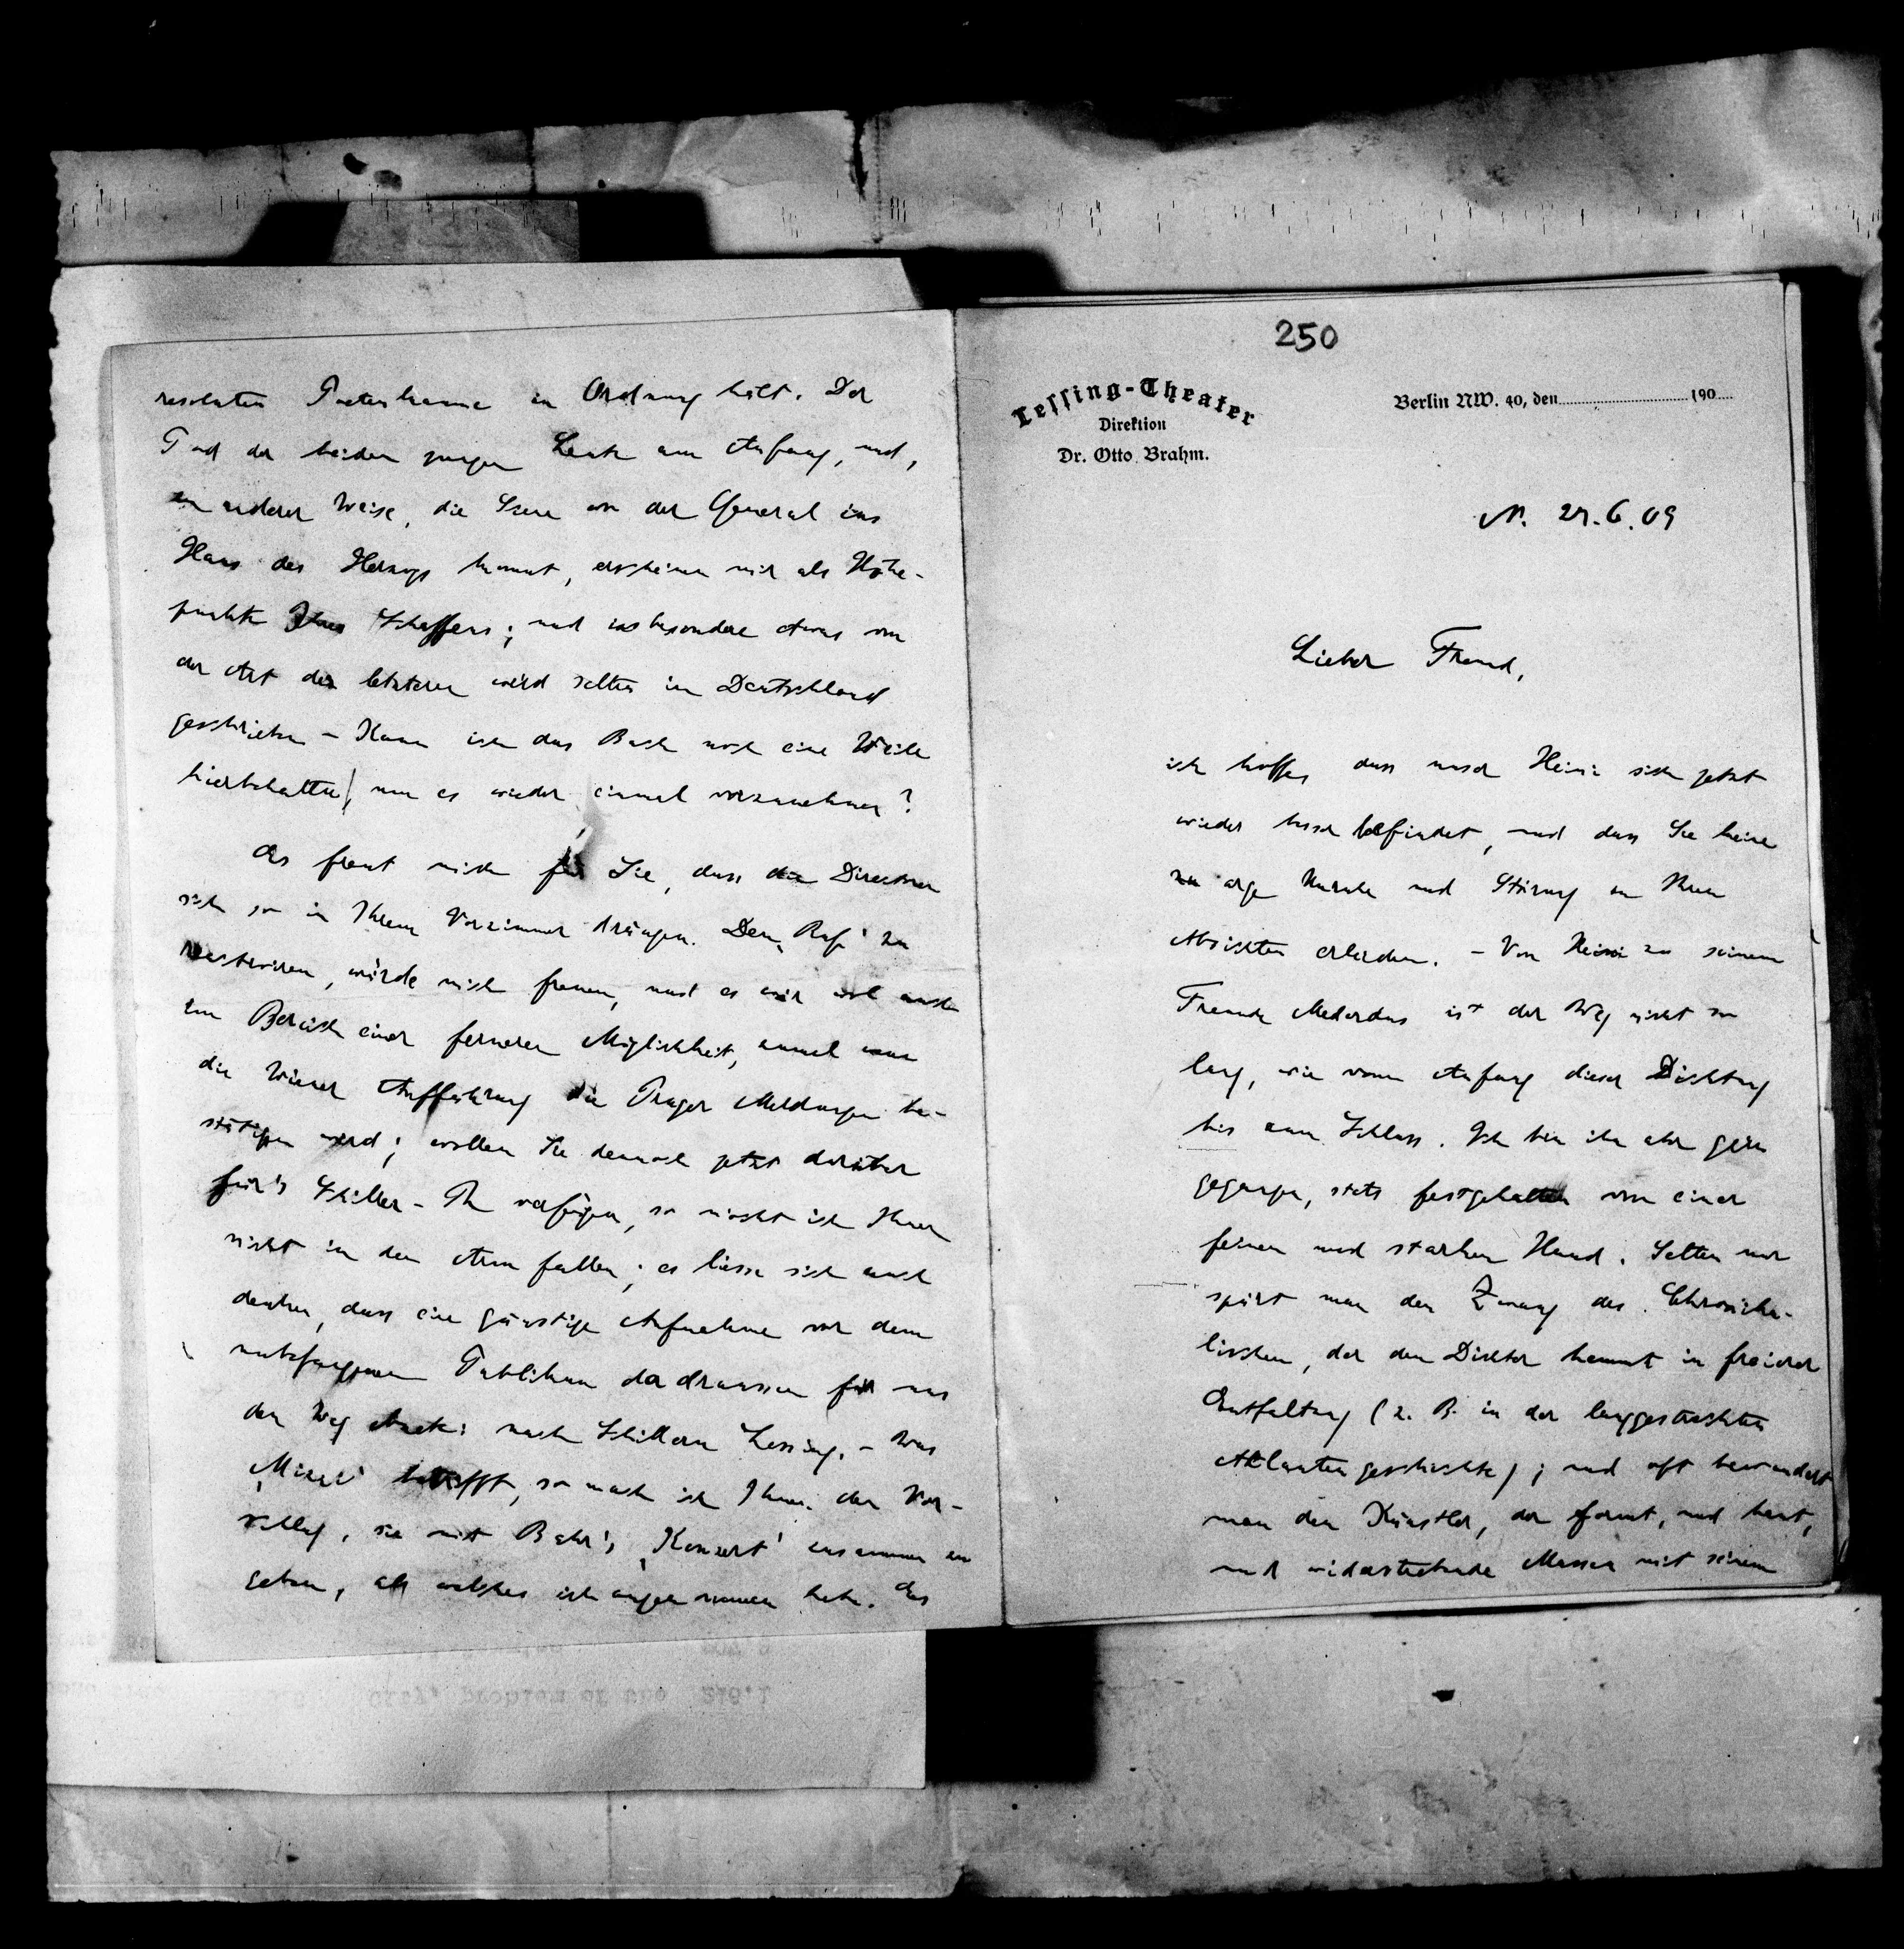 250
Lessing-Theater
Direktion
Dr. Otto Brahm.
Berlin NW. 40, den 190
N. 29.6.09
Lieber Freund,
ich hoffe, dass unser Heini sich jetzt
wieder besser befindet, und dass Sie keine
zu arge Unruhe und Störung in Ihren
Absichten erlitten. – Von Heini zu seinem
Freunde Medardus ist der Weg nicht so
lang, wie vom Anfang dieser Dichtung
bis zum Schluss. Ich bin ihn aber gern
gegangen, stets festgehalten von einer
feinen und starken Hand. Selten nur
spürt man den Zwang des Chronika-
lischen, der den Dichter hemmt in freierer
Entfaltung (z. B. in der langgestreckten
Atlantengeschichte); und oft bewundert
man den Künstler, der formt, und baut,
und widerstrebende Massen mit seinem
resoluten Poetenkamme in Ordnung hält. Der
Tod der beiden jungen Leute am Anfang, und,
in anderer Weise, die Scene wo der General ins
Haus des Herzogs kommt, erscheinen mir als Höhe-
punkte Ihres Schaffens; und insbesondere etwas von
der Art des letzteren wird selten in Deutschland
geschrieben – Kann ich das Buch noch eine Weile
hierbehalten, um es wieder einmal vorzunehmen?
Es freut mich für Sie, dass die Directoren
sich so in Ihrem Vorzimmer drängen. Den Ruf' zu
reactiviren, würde mich freuen, und es wär wol auch
im Bereich einer ferneren Möglichkeit, zumal wenn
die Wiener Aufführung die Prager Meldungen be-
stätigen wird; wollen Sie dennoch jetzt darüber
für's Schiller-Th verfügen, so möcht ich Ihnen
nicht in den Arm fallen; es liesse sich auch
denken, dass eine günstige Aufnahme vor dem
unbefangenen Publikum da draussen für uns
den Weg ebnete: nach Schillern Lessing. – Was
betrifft, so mach ich Ihnen den Vor-
schlag, sie mit Bahr's ‚Konzert' zusammen zu
geben, als welches ich angenommen habe. Es